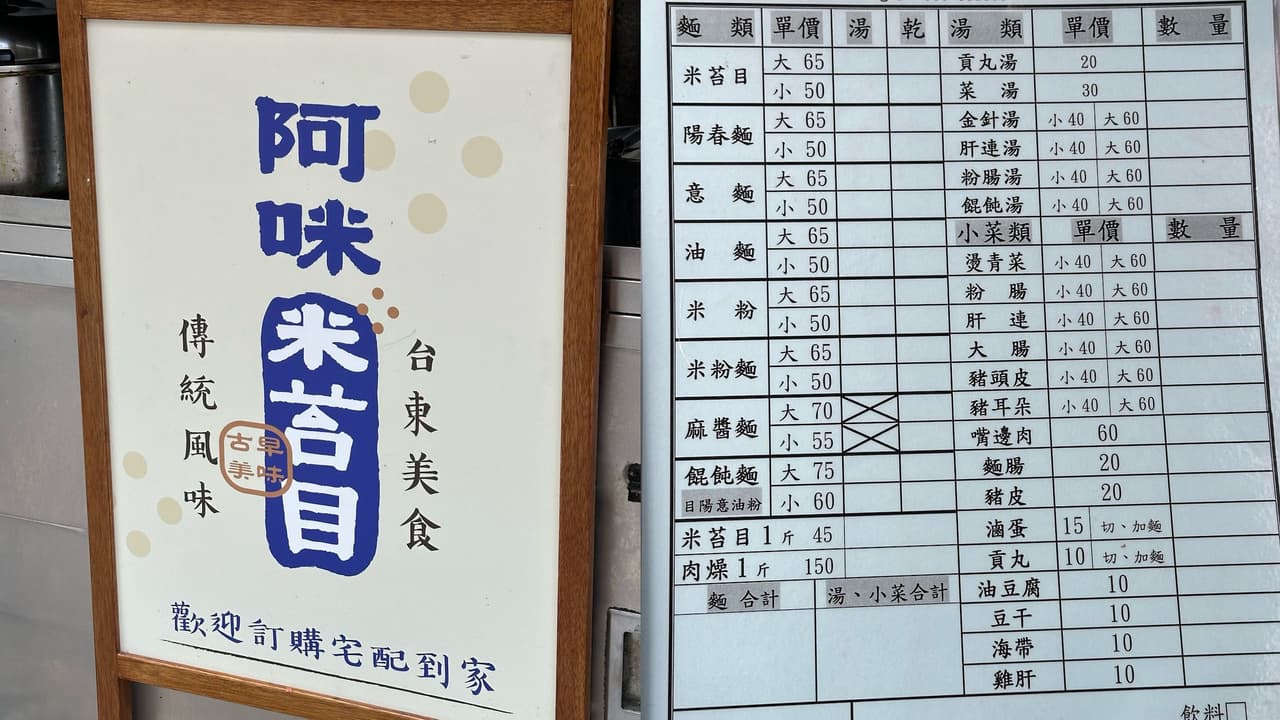 阿咪
米苔目
台東美食
傳統風味
古早
美味
歡迎訂購宅配到家
麵類 單價 湯 乾 湯類 單價 數量
米苔目 大 65 貢丸湯 20
小 50 菜湯 30
陽春麵 大 65 金針湯 小40 大60
小 50 肝連湯 小40 大60
意麵 大 65 粉腸湯 小40 大60
小 50 餛飩湯 小40 大60
油麵 大 65 小菜類 單價 數量
小 50 燙青菜 小40 大60
米粉 大 65 粉腸 小40 大60
小 50 肝連 小40 大60
米粉麵 大 65 大腸 小40 大60
小 50 豬頭皮 小40 大60
麻醬麵 大 70 豬耳朵 小40 大60
小 55 嘴邊肉 60
餛飩麵 大 75 麵腸 20
目陽意油粉 小 60 豬皮 20
米苔目1斤 45 滷蛋 15 切、加麵
肉燥1斤 150 貢丸 10 切、加麵
麵合計 湯、小菜合計 油豆腐 10
豆干 10
海帶 10
雞肝 10
飲料